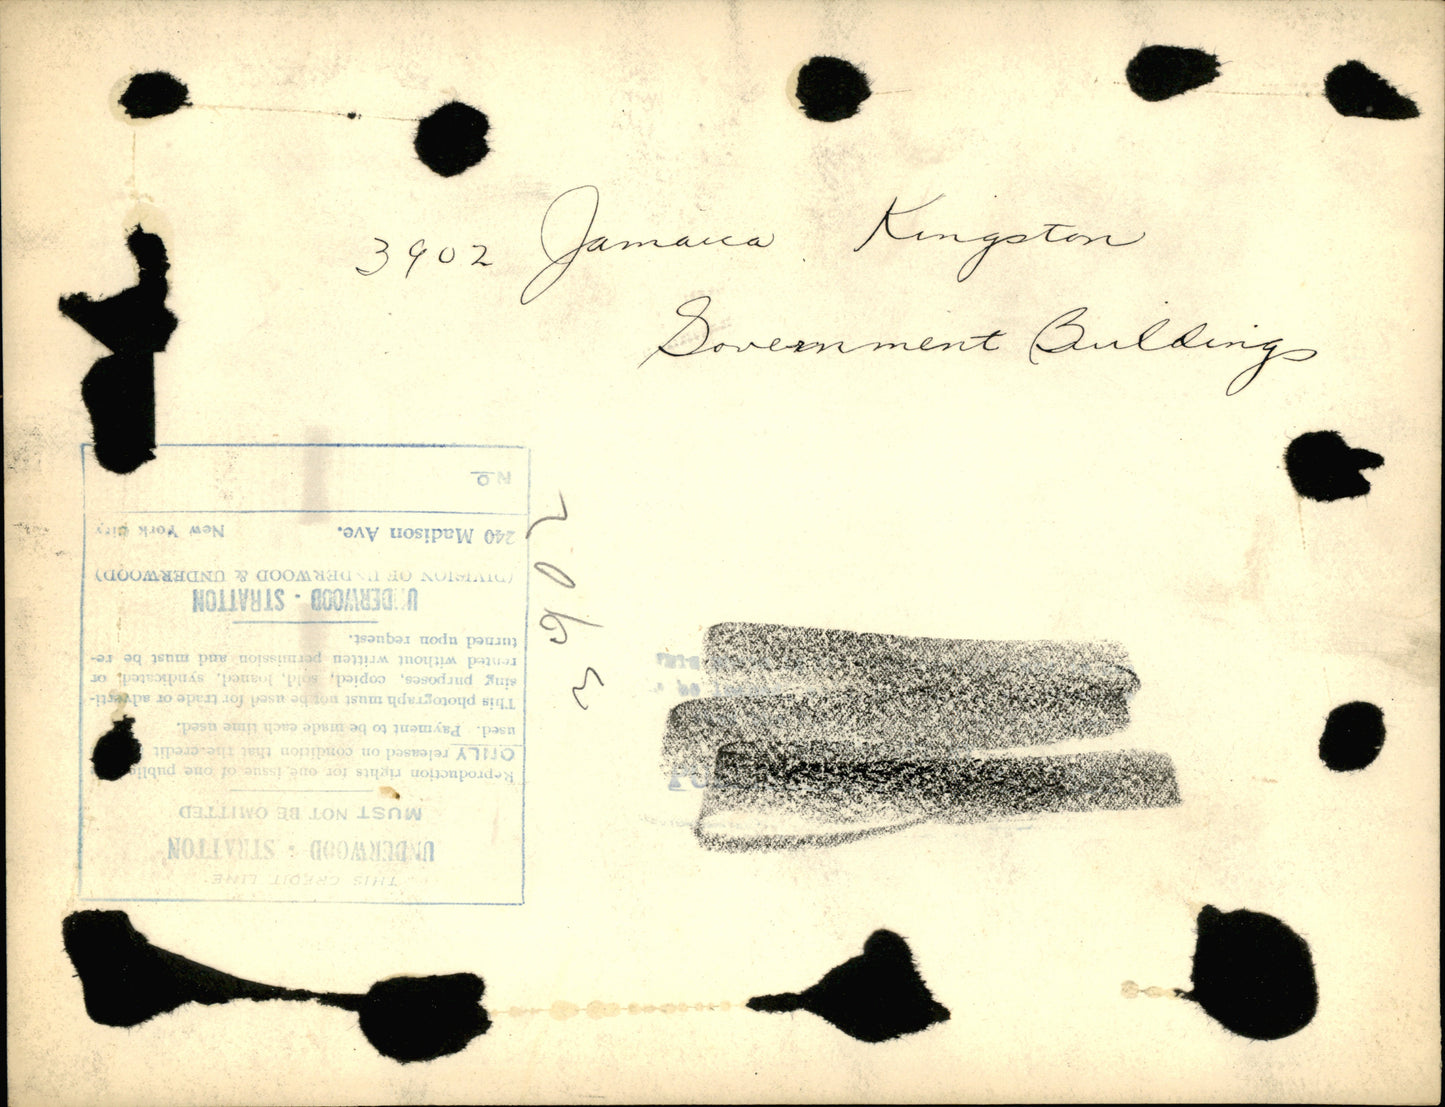 3902 Jamaica Kingston
Government Buildings
3902
THIS CREDIT LINE
UNDERWOOD - STRATTON
MUST NOT BE OMITTED
Reproduction rights for one issue of one
ONLY released on condition that the credit
used. Payment to be made each time used.
This photograph must not be used for trade or adverti-
sing purposes, copied, sold, loaned, syndicated, or
rented without written permission and must be re-
turned upon request.
UNDERWOOD - STRATTON
(DIVISION OF UNDERWOOD & UNDERWOOD)
240 Madison Ave. New York City
No